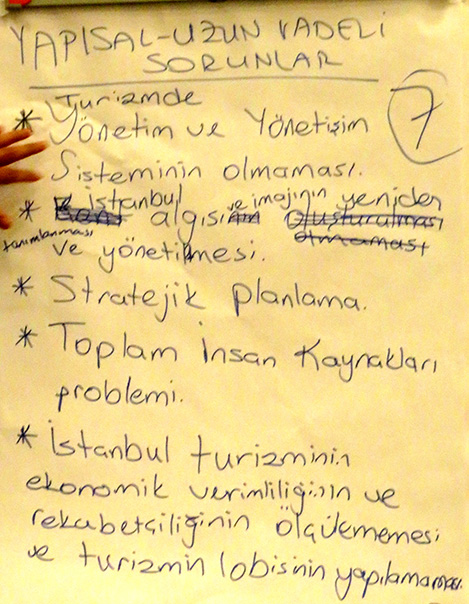 YAPISAL-UZUN VADELİ
SORUNLAR
7
* Turizmde
Yönetim ve Yönetişim
Sisteminin olmaması.
* İstanbul ve imajının yeniden
algısının oluşturulması
olmaması
tanımlanması
ve yönetilmesi.
* Stratejik planlama.
* Toplam insan kaynakları
problemi.
* İstanbul turizminin
ekonomik verimliliğinin ve
rekabetçiliğinin ölçülememesi
ve turizmin lobisinin yapılamaması.